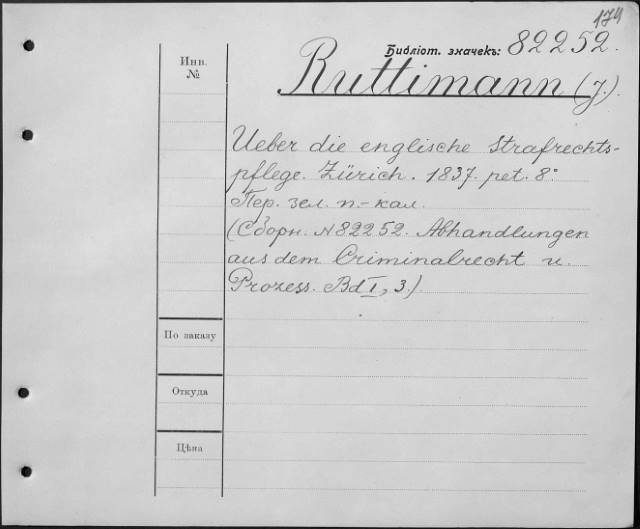 174
Библіот. значекъ: 82252.
Инв.
№
Ruttimann (J.).
Ueber die englische Strafrechts-
pflege. Zürich. 1837. pet. 8°
Пер. зел. п.-кал.
(Сборн. N 82252. Abhandlungen
aus dem Criminalrecht u.
Prozess. Bd I, 3.)
По заказу
Откуда
Цѣна